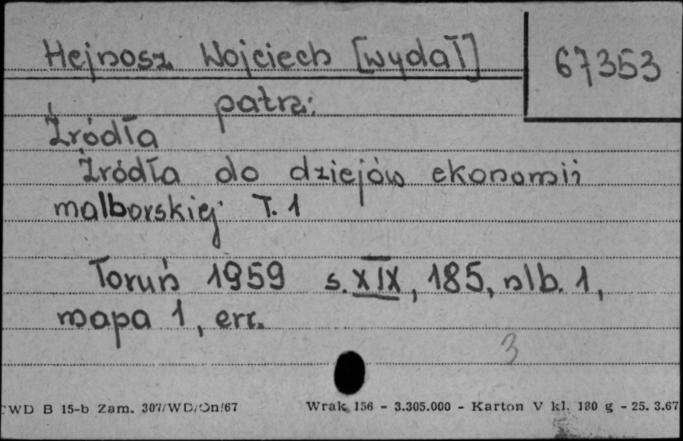 Hejnosz Wojciech [wydał]
67353
patrz:
Źródła
Źródła do dziejów ekonomii
malborskiej T. 1
Toruń 1959 s. XIX, 185, nlb. 1,
mapa 1, err.
3
WD B 15-b Zam. 307/WD/On/67 Wrak 156 - 3.305.000 - Karton V kl. 180 g - 25. 3.67